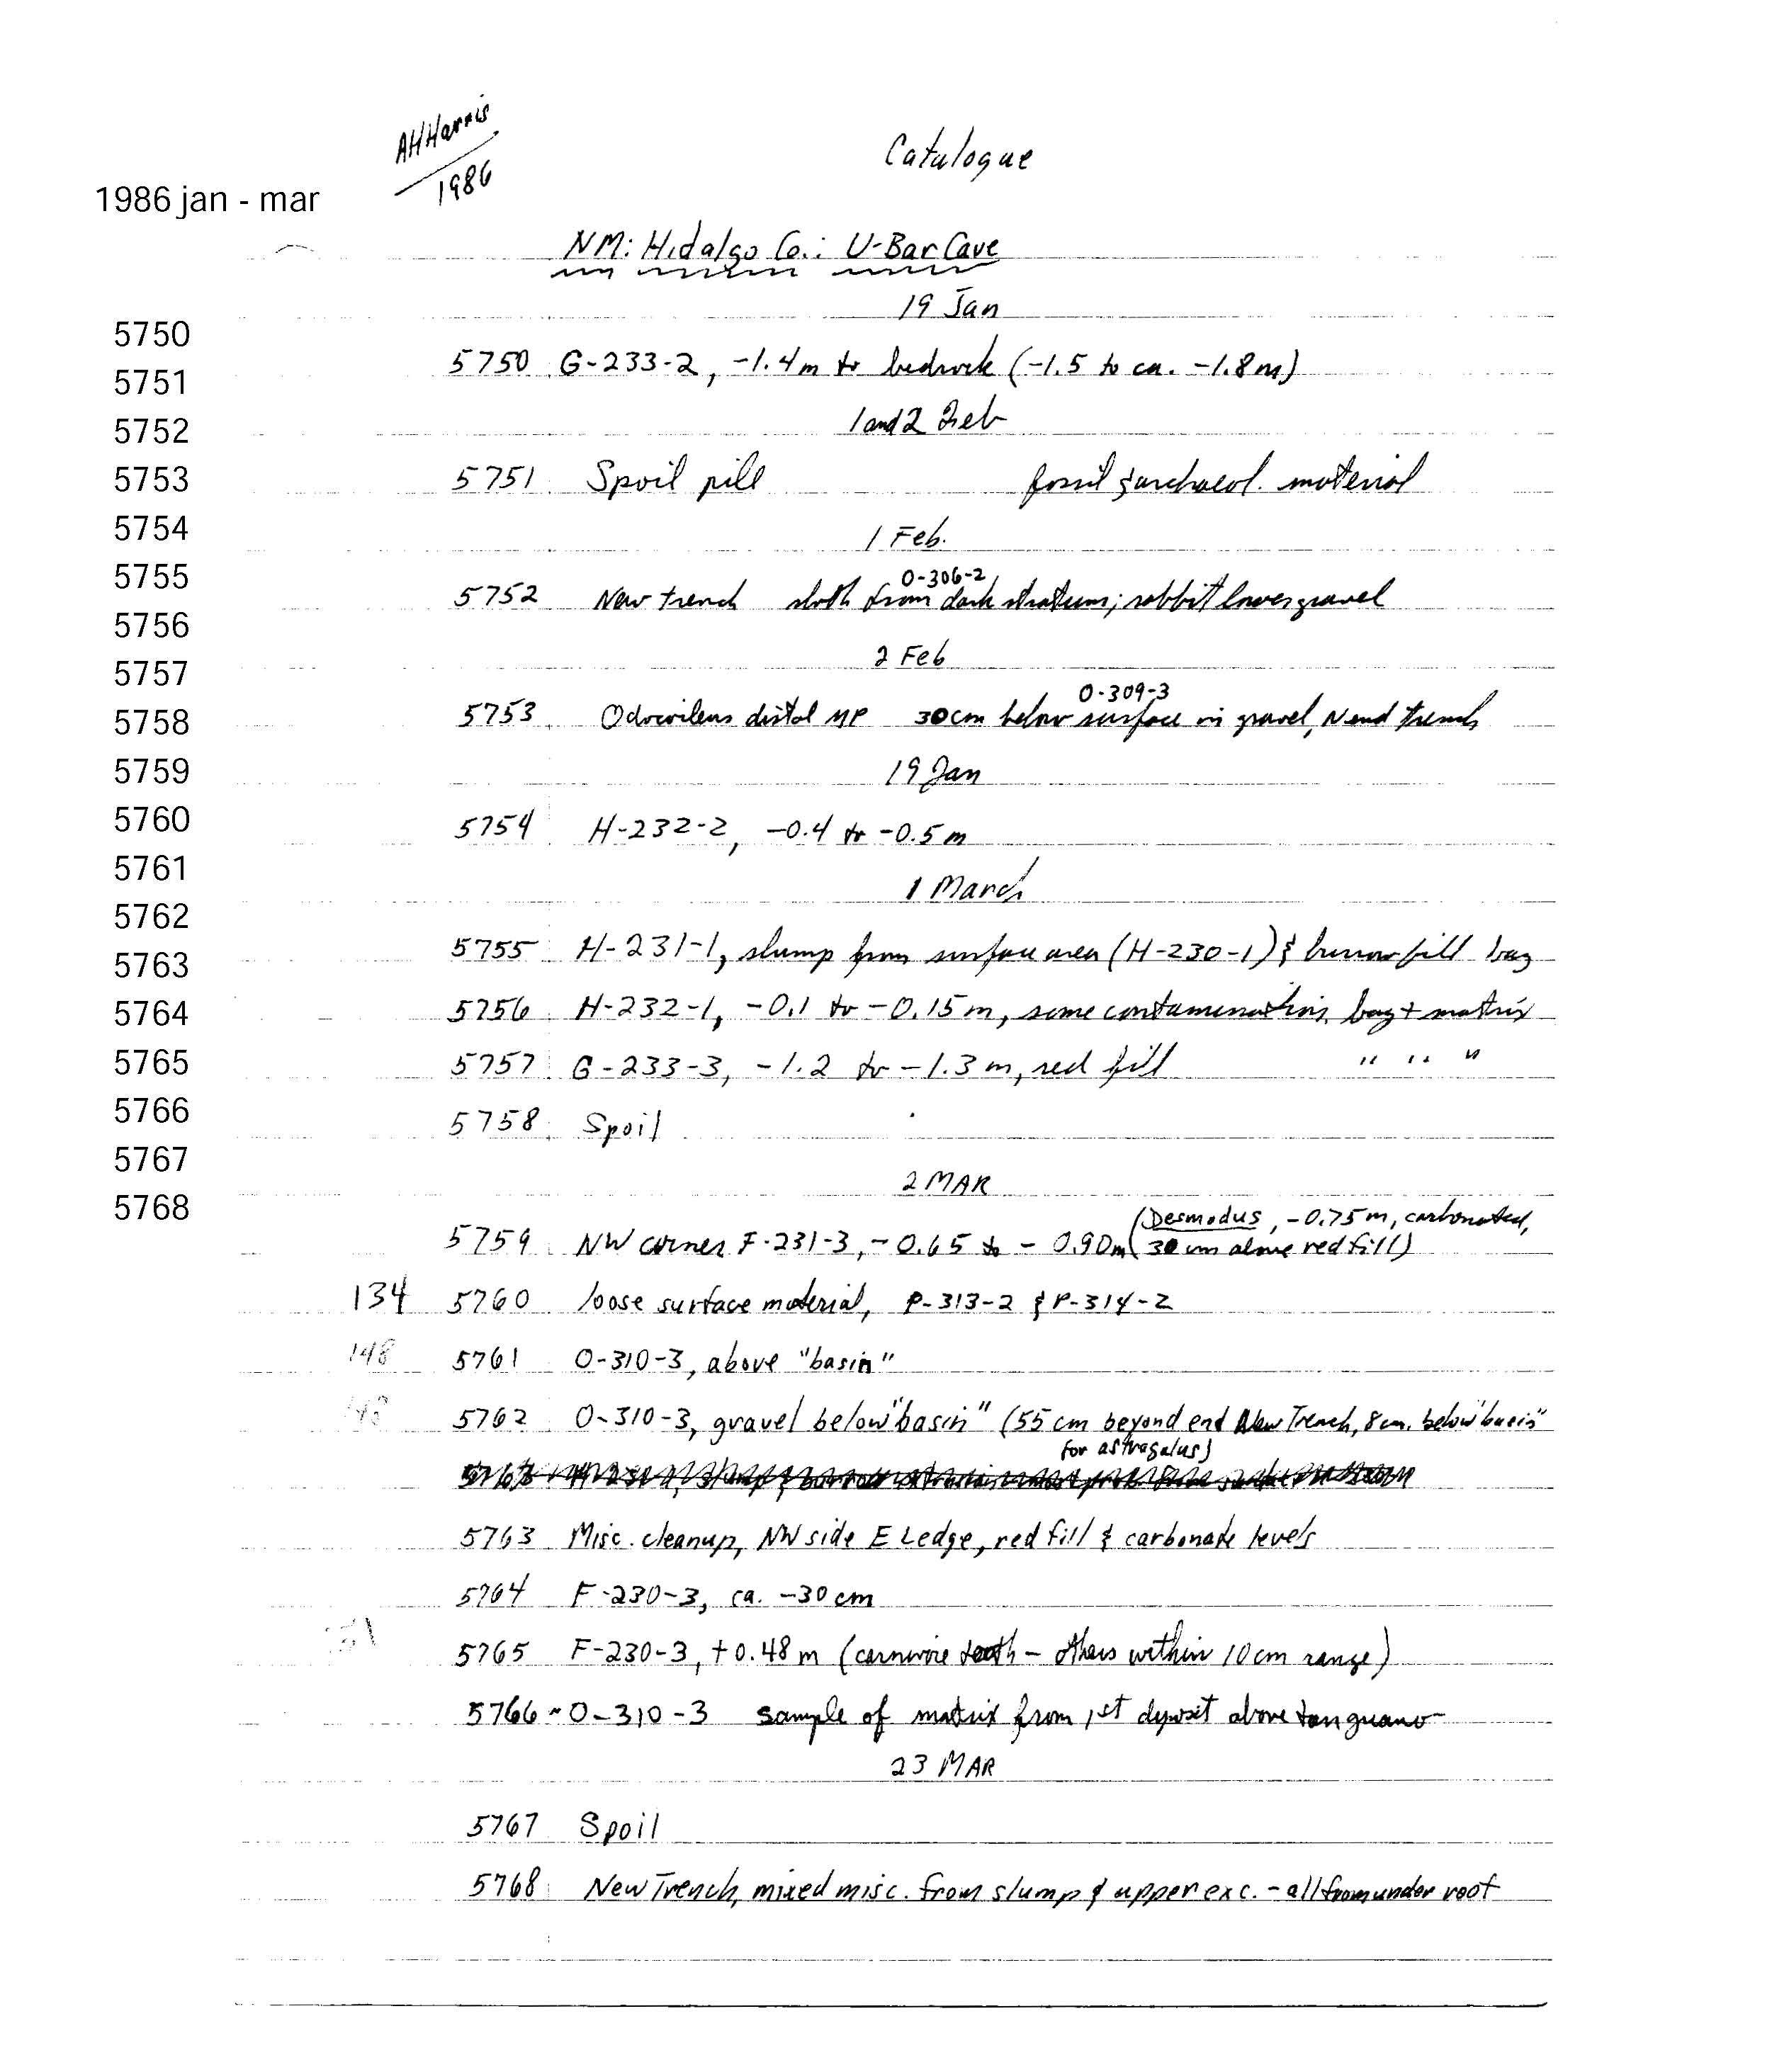 AHHarris
1986
Catalogue
1986 jan - mar
NM: Hidalgo Co.: U-Bar Cave
19 Jan
5750
5750 G-233-2, -1.4m to bedrock (-1.5 to ca. -1.8m)
5751
1 and 2 Feb
5752
5753
5751 Spoil pill fossil & archaeol. material
5754
1 Feb.
5755
O-306-2
5752 New trench sloth from dark stratum; rabbit lower gravel
5756
2 Feb
5757
O-309-3
5758
5753 Odocoileus distal MP 30cm below surface in gravel, N end trench
5759
19 Jan
5760
5754 H-232-2, -0.4 to -0.5m
5761
1 March
5762
5763
5755 H-231-1, slump from surface area (H-230-1) & burrow fill bag
5764
5756 H-232-1, -0.1 to -0.15m, some contamination, bag + matrix
5765
5757 G-233-3, -1.2 to -1.3m, red fill " " "
5766
5758 Spoil
5767
2 MAR
5768
(Desmodus, -0.75m, carbonated,
5759 NW corner F-231-3, -0.65 to -0.90m 30 cm above red fill)
134 5760 loose surface material, P-313-2 & P-314-2
148 5761 O-310-3, above "basin"
148 5762 O-310-3, gravel below "basin" (55 cm beyond end New Trench, 8cm. below "basin"
for astragalus)
5763 Misc. cleanup, NW side E Ledge, red fill & carbonate levels
5764 F-230-3, ca. -30cm
5765 F-230-3, +0.48m (carnivore tooth - others within 10cm range)
5766 - O-310-3 sample of matrix from 1st deposit above tan guano
23 MAR
5767 Spoil
5768 New Trench, mixed misc. from slump & upper exc. - all from under roof